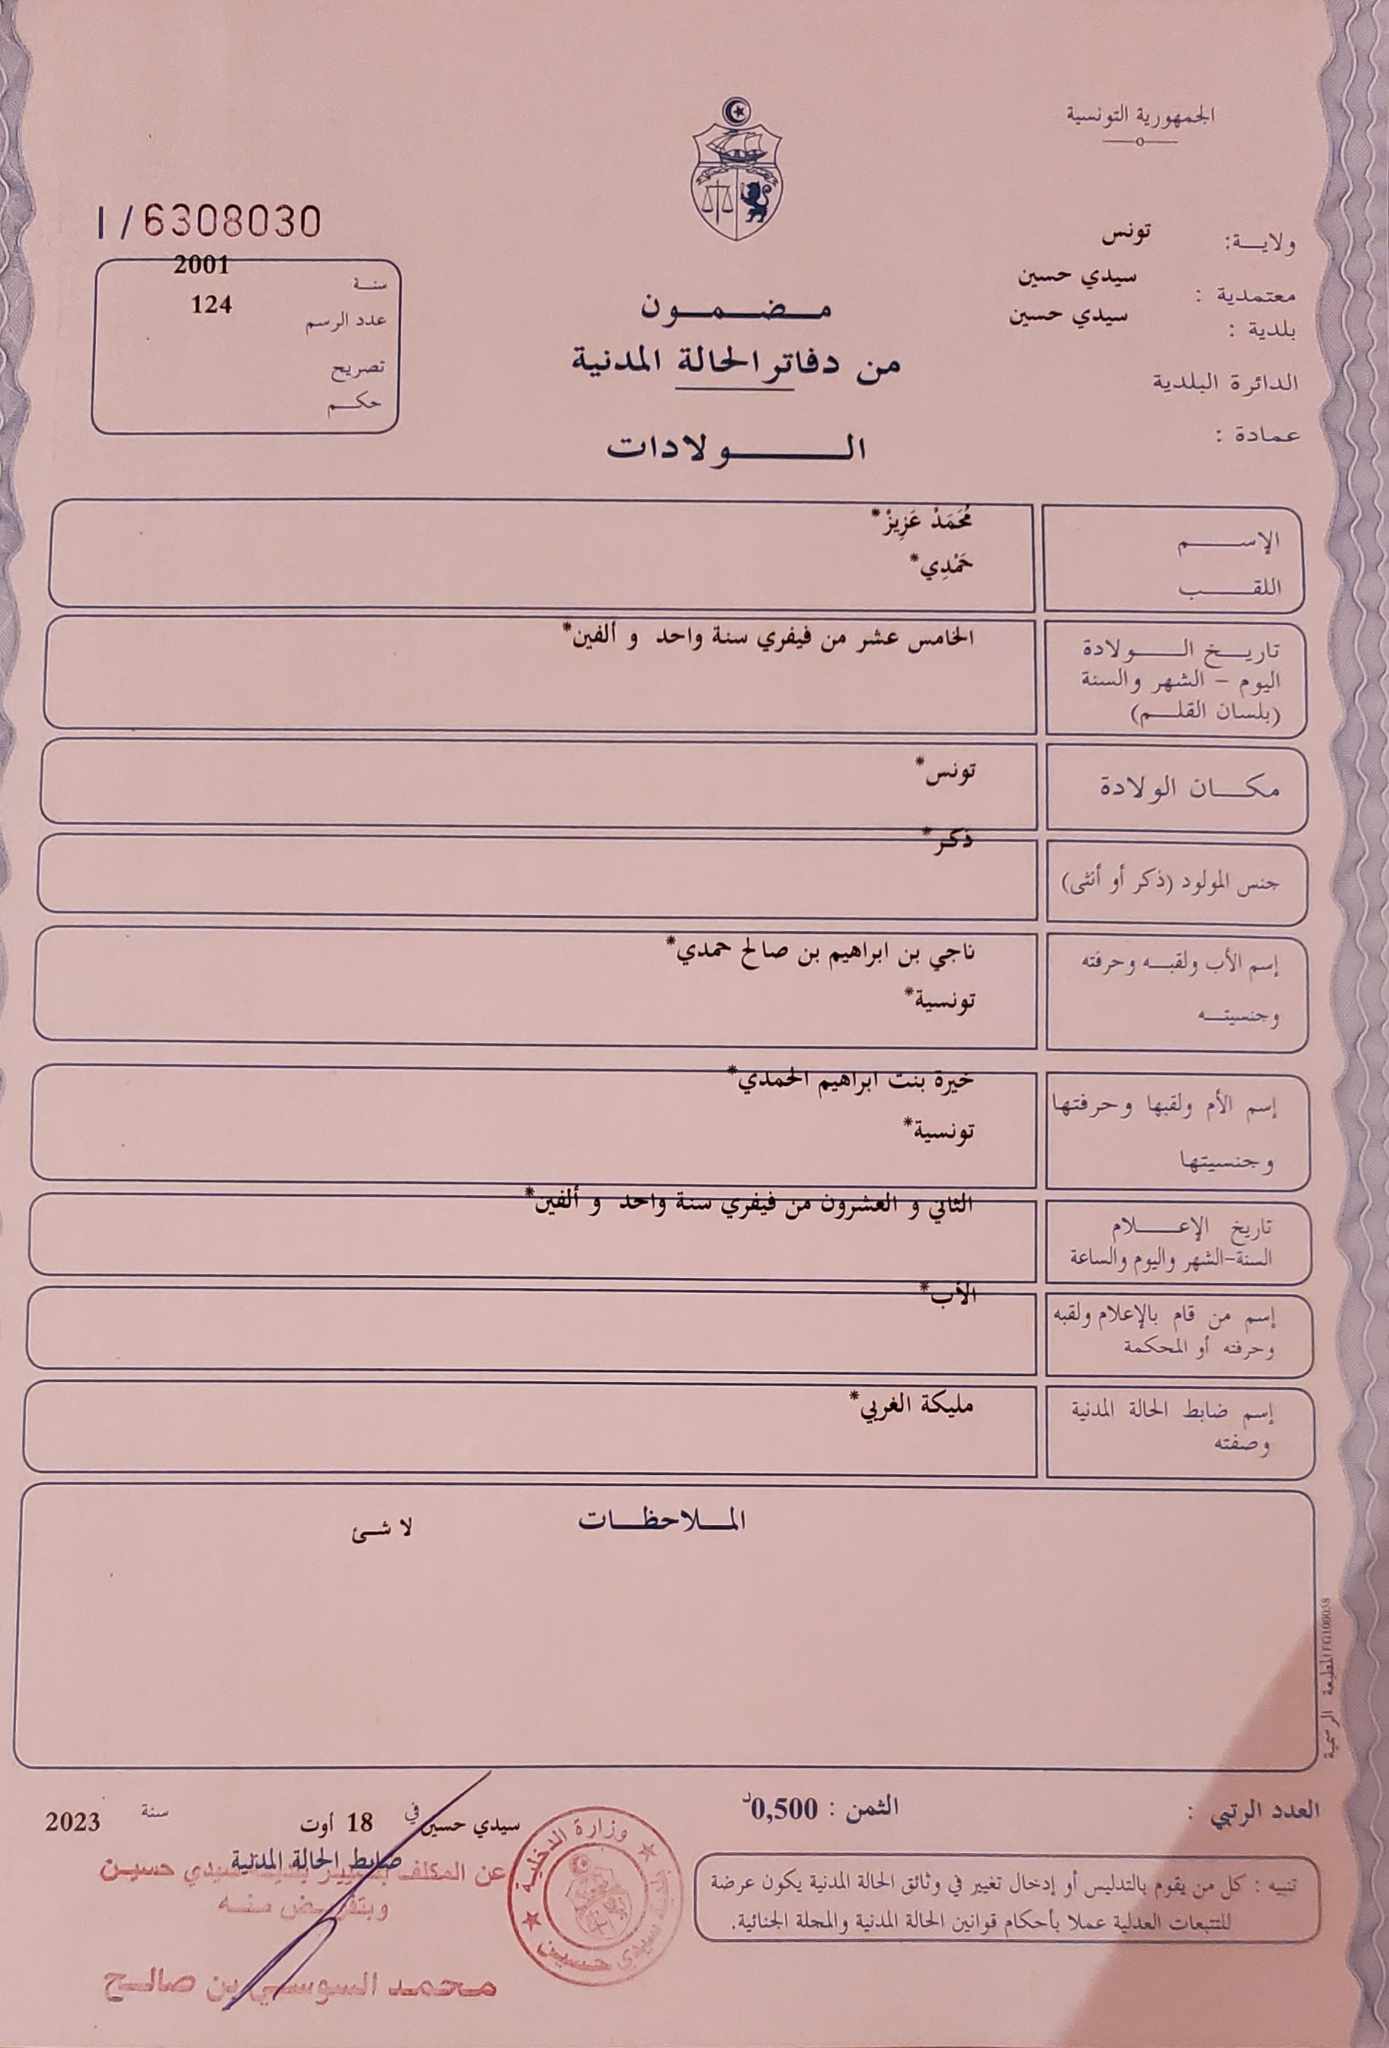 الجمهورية التونسية
ولايـــة: تونس
معتمدية : سيدي حسين
بلدية : سيدي حسين
الدائرة البلدية
عمادة :
I / 6308030
سنـة 2001
عدد الرسم 124
تصريح
حكـم
مـــضـــمـــون
من دفاتر الحالة المدنية
الـــــولادات
الإســـــم مُحَمَدْ عَزِيزْ*
اللقـــــب حَمْدِي*
تاريـــخ الـــولادة
اليوم – الشهر والسنة
(بلسان القلـــم)
الخامس عشر من فيفري سنة واحد و ألفين*
مكـــان الولادة تونس*
جنس المولود (ذكر أو أنثى) ذكر*
إسم الأب ولقبـــه وحرفته ناجي بن ابراهيم بن صالح حمدي*
وجنسيتـــه تونسية*
إسم الأم ولقبها وحرفتها خيرة بنت ابراهيم الحمدي*
وجنسيتها تونسية*
تاريخ الإعـــلام
السنة-الشهر واليوم والساعة
الثاني و العشرون من فيفري سنة واحد و ألفين*
إسم من قام بالإعلام ولقبه
وحرفته أو المحكمة
الأب*
إسم ضابط الحالة المدنية
وصفته
مليكة الغربي*
المــلاحظــات
لا شئ
العدد الرتبي :
الثمن : 0,500د
سيدي حسين في 18 أوت سنة 2023
ضابط الحالة المدنية
عن المكلف بتسيير بلدية سيدي حسين
وبتفويض منه
محمد السوسي بن صالح
وزارة الداخلية
سيدي حسين
تنبيه : كل من يقوم بالتدليس أو إدخال تغيير في وثائق الحالة المدنية يكون عرضة
للتتبعات العدلية عملا بأحكام قوانين الحالة المدنية والمجلة الجنائية.
المطبعة الرسمية